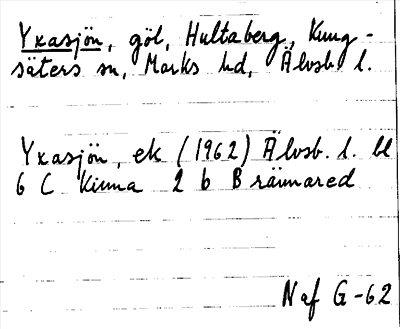 Yxasjön, göl, Hultaberg, Kung-
säters sn, Marks hd, Älvsb. l.
Yxasjön, ek (1962) Älvsb. l. bl
6 C Kinna 2 b Brännared
Naf G-62